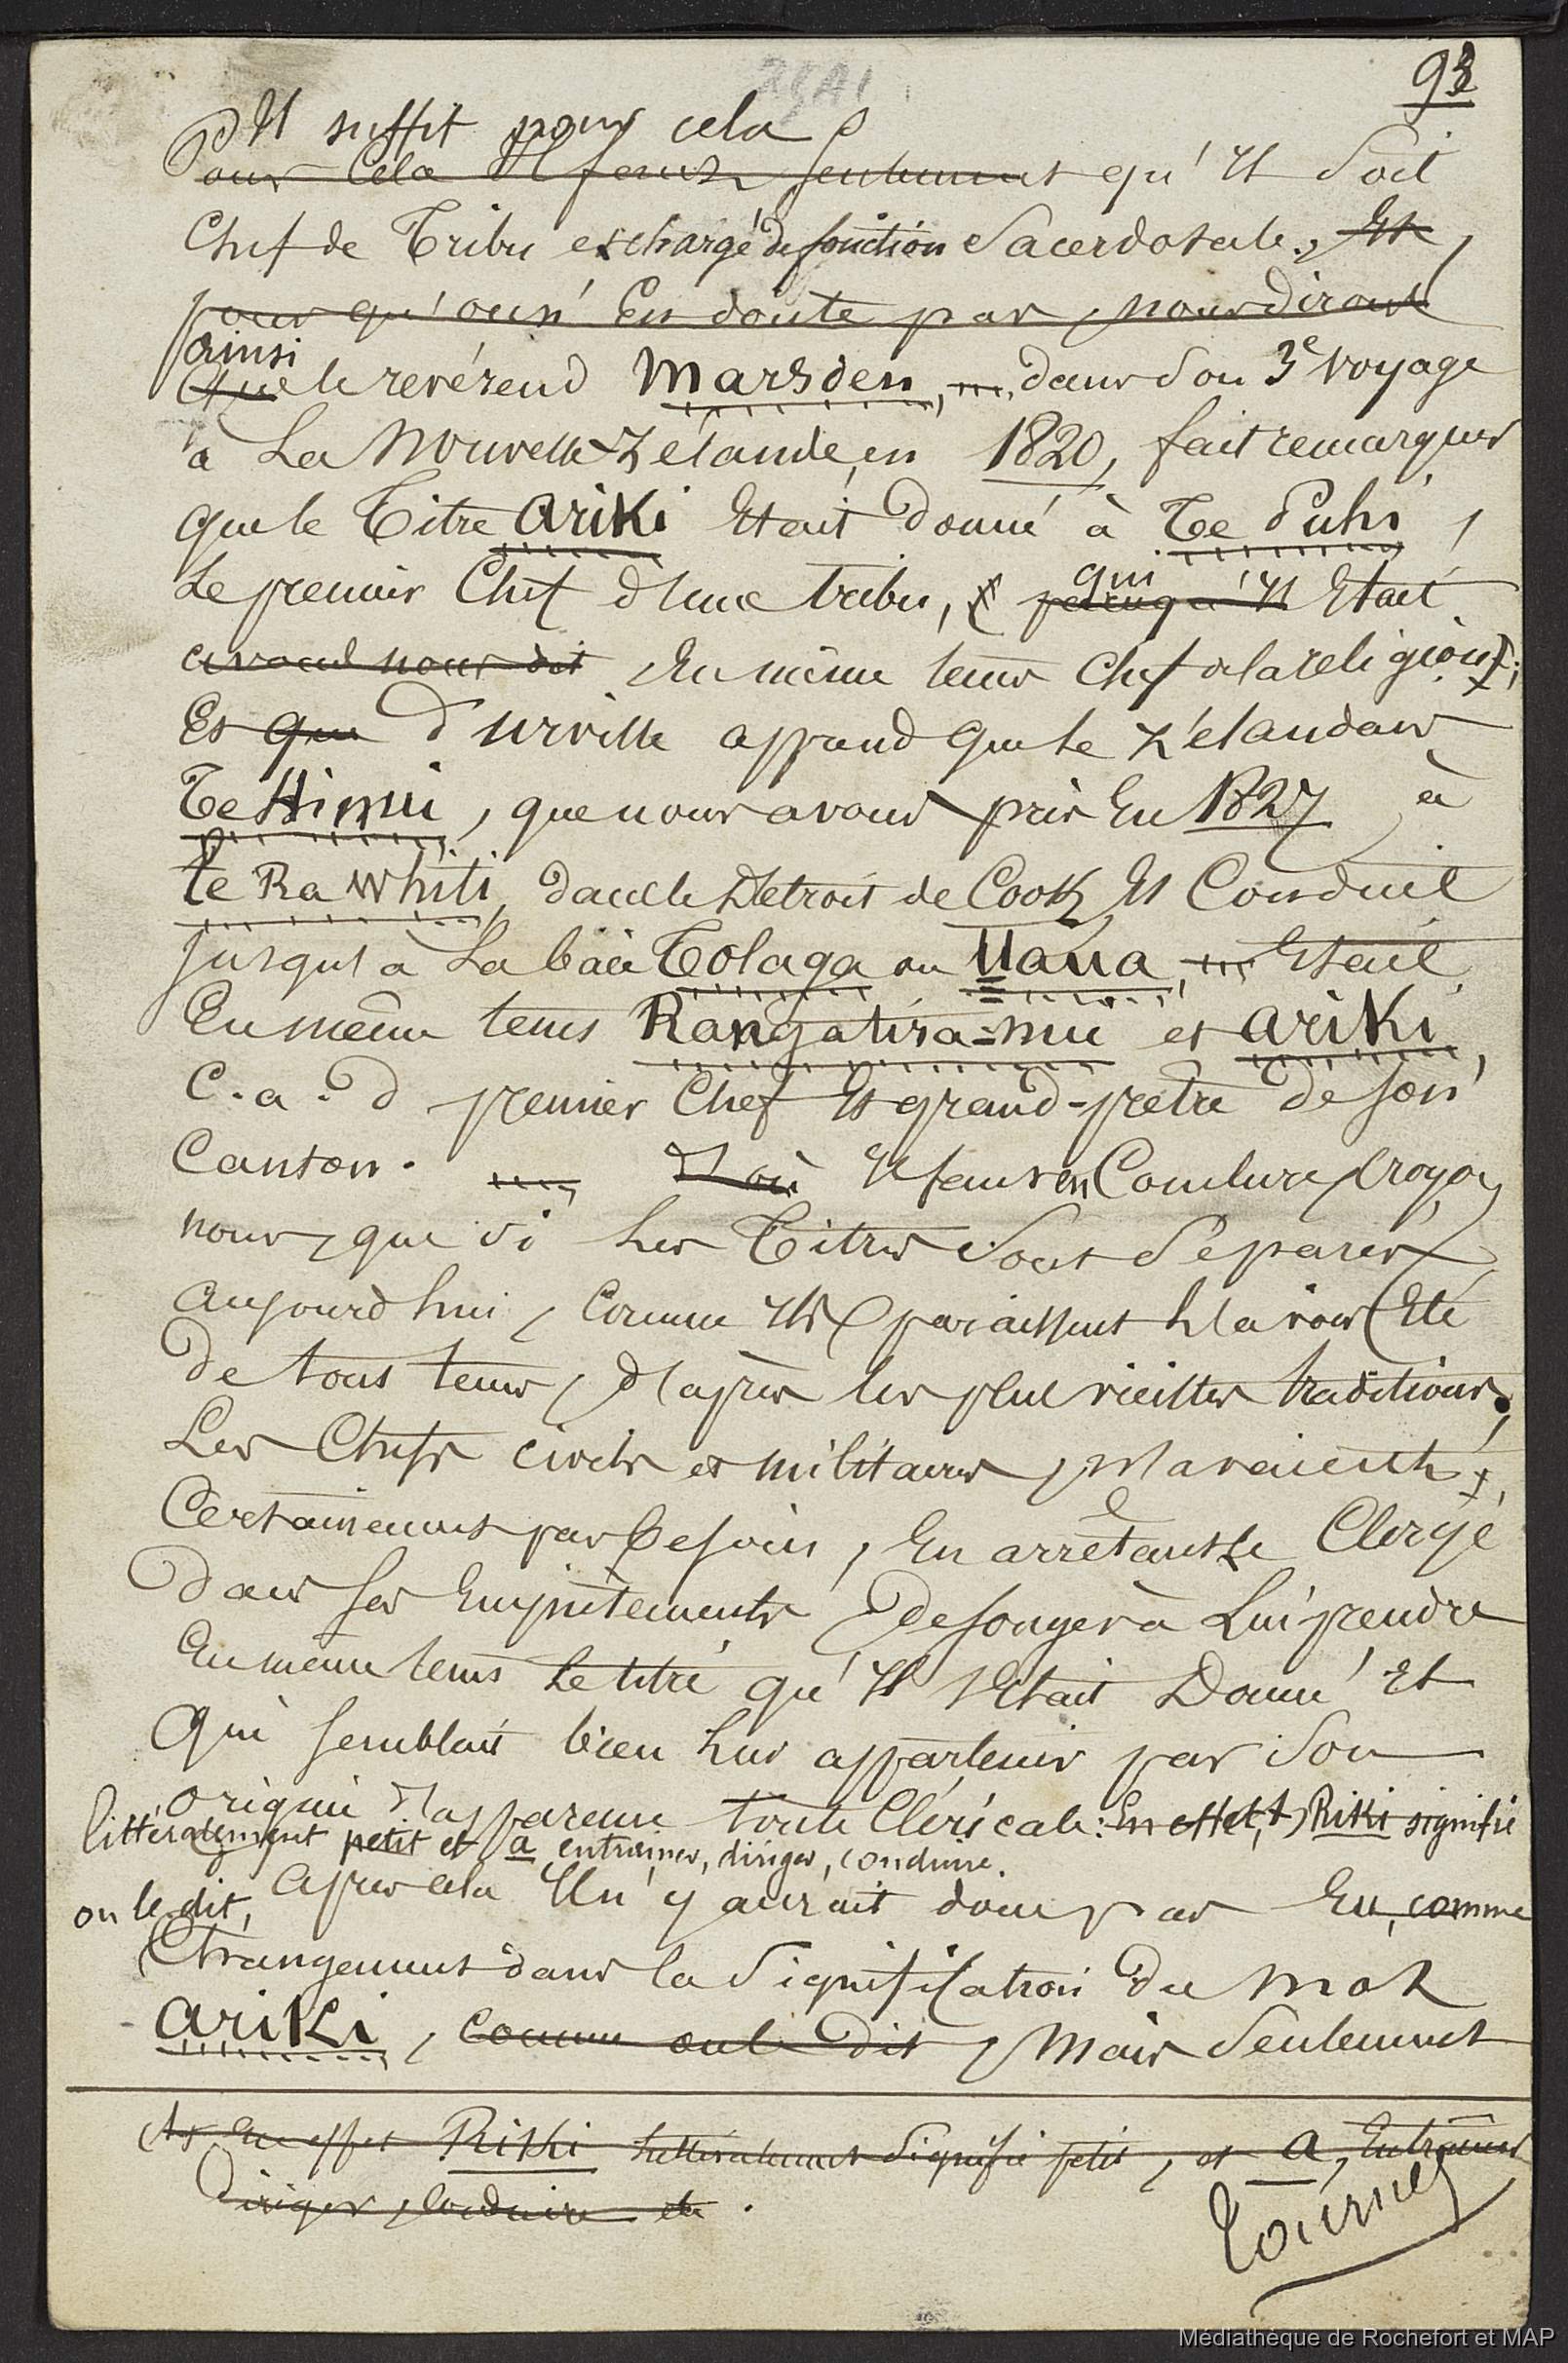 93
Il suffit pour cela
Pour Cela Il faut seulement qu'Il Soit
Chef de Tribu et chargé de fonction Sacerdotale, Et
pour qu'on n'En doute pas, nous dirons
ainsi
Que le reverend Marsden, dans Son 3e voyage
à La Nouvelle-Zélande, en 1820, fait remarquer
que le Titre ariki Etait donné à Te Puhi,
Le premier Chef d'une tribu, qui Etait
puisqu'Il
avait nous dit En même tems Chef de la religion;
Et que d'urville apprend que le Zélandais
Te Hinui, que nous avons pris En 1827 à
te Ra Whiti, dans le Détroit de Cook Et Conduit
jusqu'à La baie Tolaga ou Uaua, Etait
En même tems Rangatira-nui et ariki,
C. a. d premier Chef Et grand-prêtre de son
Canton. D'où Il faut en Conclure, croyons
nous, que si Les Titres Sont Séparés
aujourd'hui, Comme Ils paraissent L'avoir Eté
De tous tems, D'après les plus vieilles traditions,
Les Chefs civils et militaires, n'avaient
Certainement pas besoin, En arrêtant Le Clergé
Dans ses Empiètements, de songer à Lui prendre
En même tems Le titre qu'Il s'Etait Donné Et
Qui semblait bien Lui appartenir par Son
origine D'apparence toute Cléricale: En effet, Riki signifie
littéralement petit et a entrainer, diriger, conduire.
Après cela Il n'y aurait donc pas Eu, comme
on le dit,
Changement dans la Signification du mot
ariki, comme on le dit, Mais Seulement
En effet Riki littéralement Signifie petit, et a, Entrainer
Diriger, Conduire etc.
Tournez
Médiathèque de Rochefort et MAP